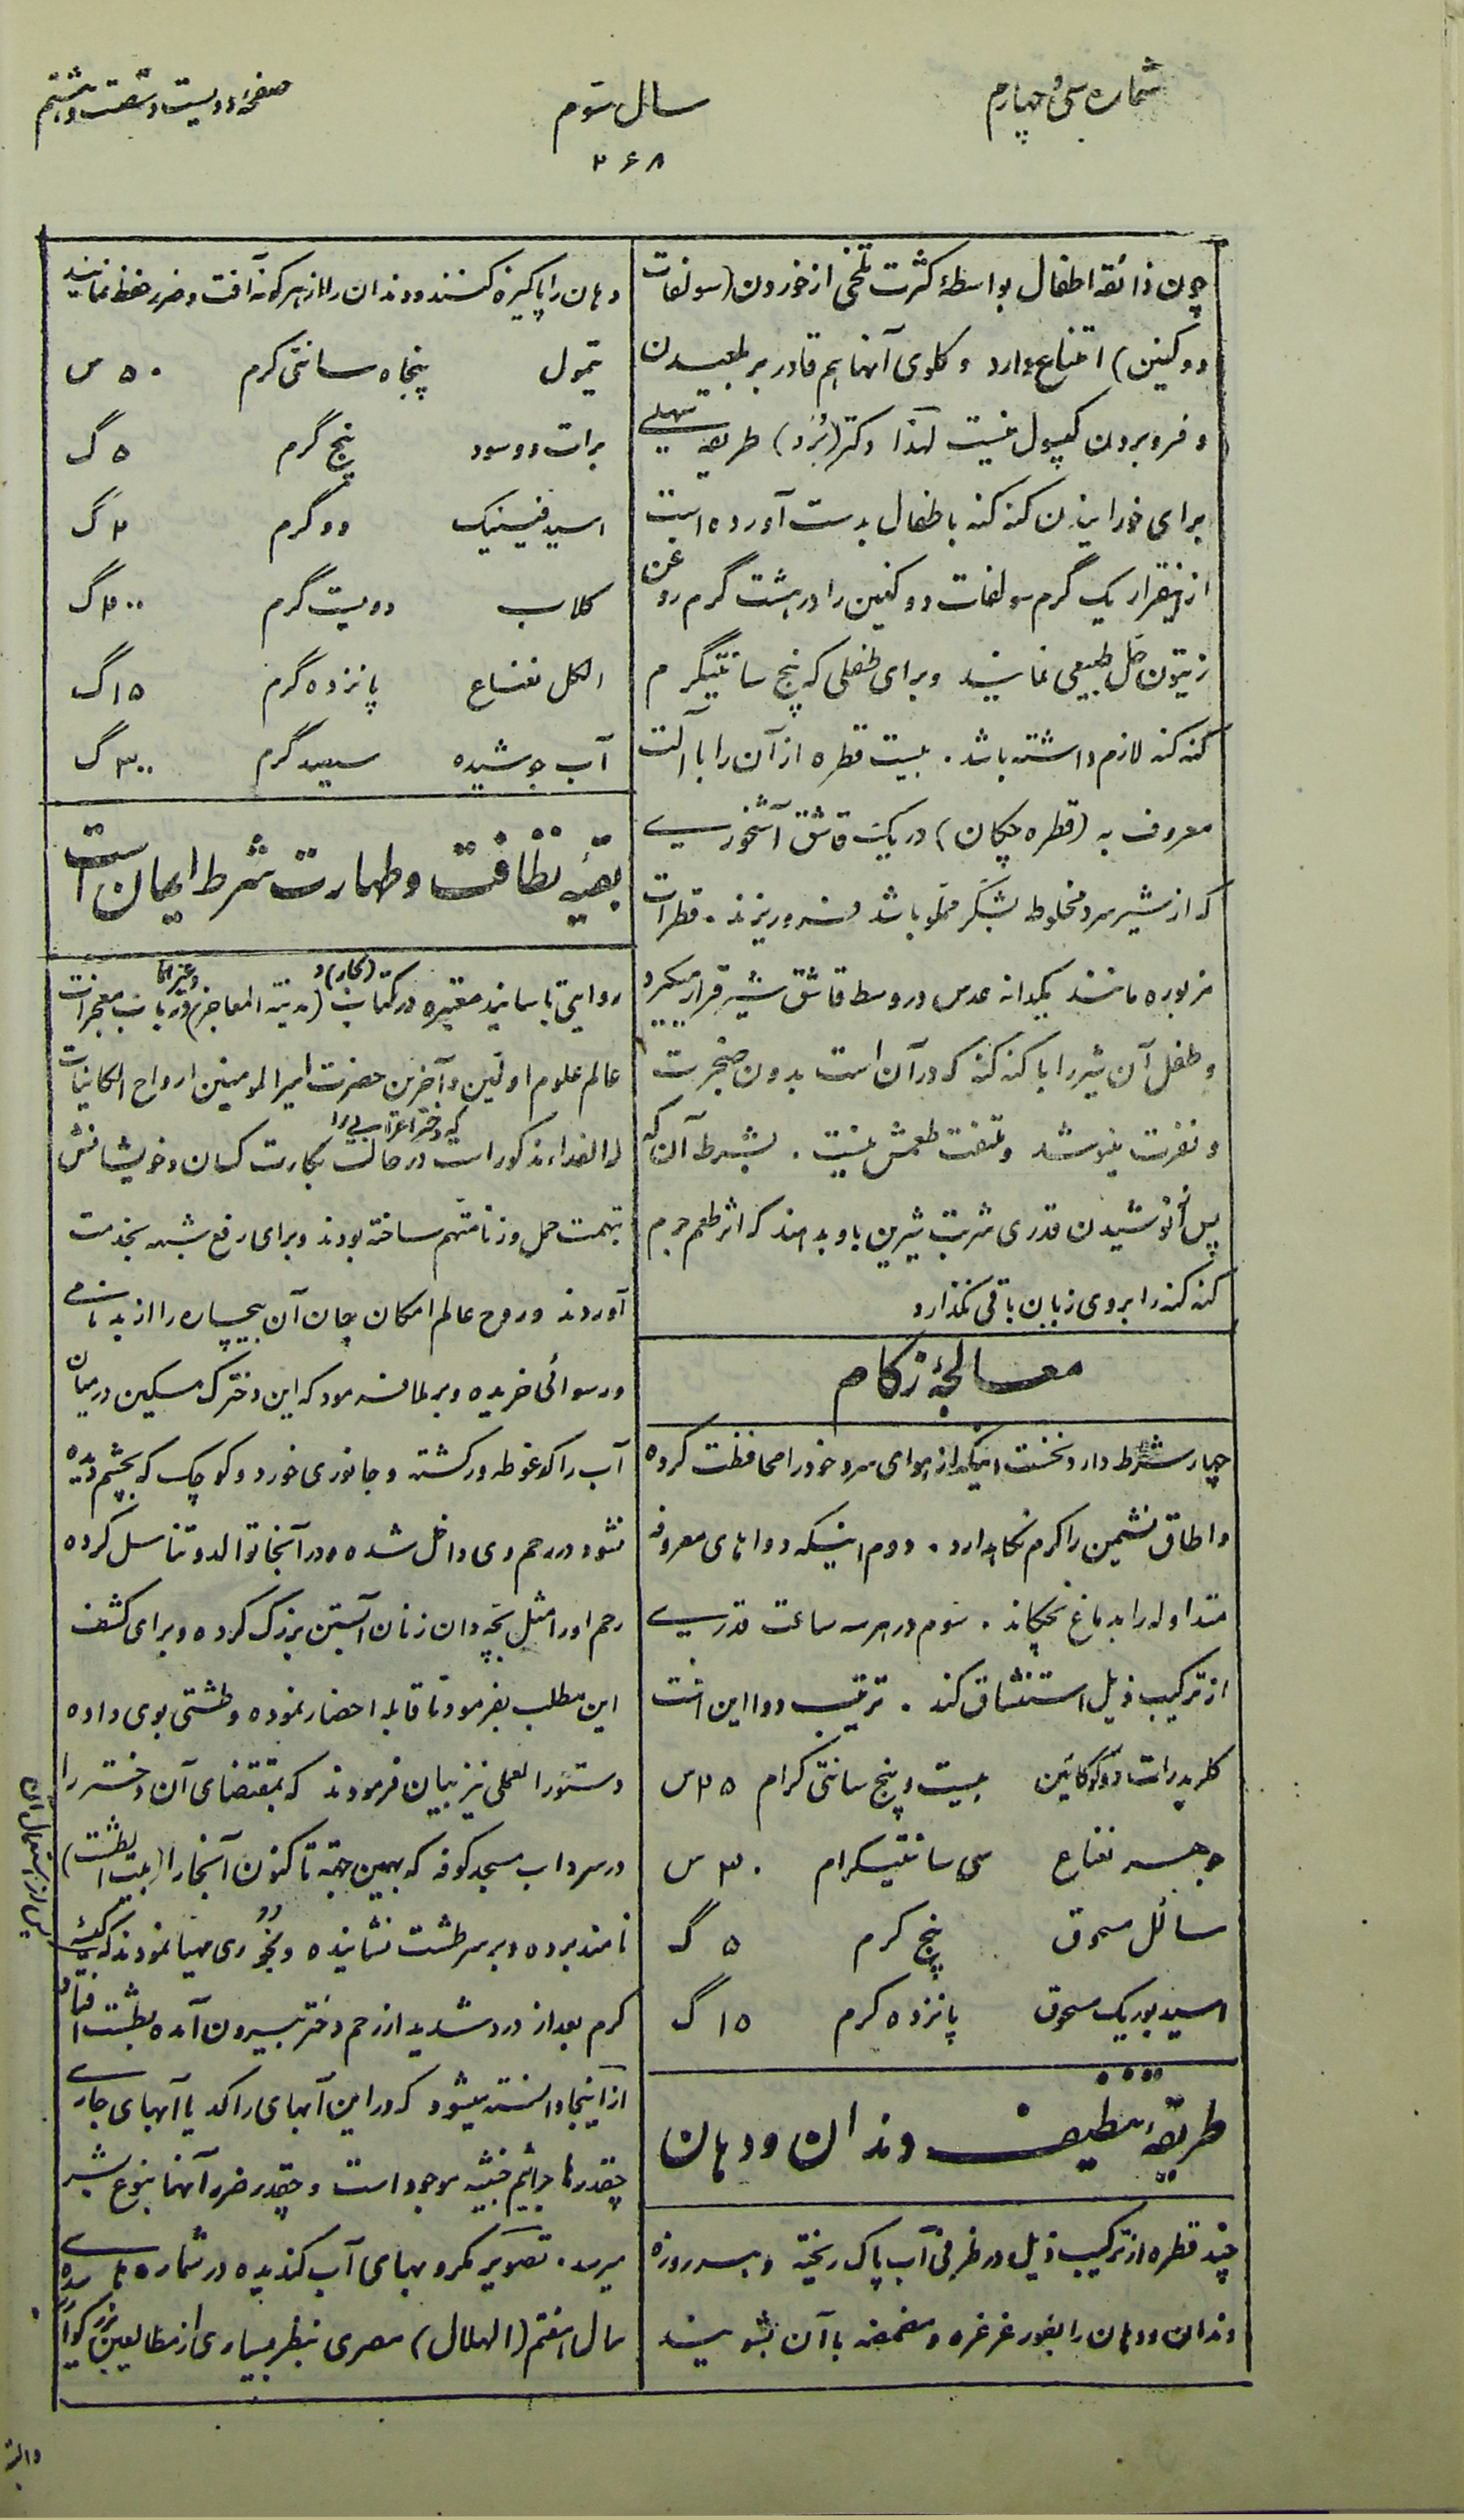 شماره سی و چهارم
سال سوم
صفحهٔ دویست و شصت و هشتم
۲۶۸
چون ذائقه اطفال بواسطهٔ کثرت تلخی از خوردن (سولفات
دوکینین) امتناع دارد و کلوی آنها هم قادر بر بلعیدن
و فرو بردن کپسول نیست لهذا دکتر (بُرد) طریقه سهلی
برای خورانیدن کنه کنه باطفال بدست آورده است
ازینقرار یک گرم سولفات دوکنین را در هشت گرم روغن
زیتون حلّ طبیعی نمایند و برای طفلی که پنج سانتیگرم
کنه کنه لازم داشته باشد . بیست قطره از آن را با آلت
معروف به (قطره چکان) در یک قاشق آشخوری
که از شیر سرد مخلوط بشکر مملو باشد فرو ریزند . قطرات
مزبوره مانند یکدانه عدس در وسط قاشق شیر قرار میگیرد
و طفل آن شیر را با کنه کنه که در آن است بدون ضجرت
و نفرت بنوشد و ملتفت طعمش نیست . بشرط آن که
پس از نوشیدن قدری شربت شیرین باو بدهند که اثر طعم جرم
کنه کنه را بروی زبان باقی نگذارد
معالجهٔ زکام
چهار شرط دارد نخست اینکه از هوای سرد خود را محافظت کرده
و اطاق نشیمن را گرم نگاهدارد . دوم اینکه دواهای معروفه
متداوله را بدماغ نچکاند . سوم در هر سه ساعت قدری
از ترکیب ذیل استنشاق کند . ترتیب دوا این است
کلریدرات دوکوکائین بیست و پنج سانتی گرام ۲۵ س
جوهر نعناع سی سانتیگرام ۳۰ س
سائل مسحوق پنج کرم ۵ گ
اسید بوریک مسحوق پانزده کرم ۱۵ گ
طریقهٔ تنظیف دندان و دهان
چند قطره از ترکیب ذیل در ظرفی آب پاک ریخته و هر روزه
دندان و دهان را بفور غرغره و مضمضه با آن بشویند
دهان را پاکیزه کنند و دندان را از هر کونه آفت و ضرر حفظ نمایند
تیمول پنجاه سانتی کرم ۵۰ س
برات دوسود پنج گرم ۵ گ
اسید فینیک دو گرم ۲ گ
کلاب دویست گرم ۲۰۰ گ
الکل نعناع پانزده گرم ۱۵ گ
آب جوشیده سیصد گرم ۳۰۰ گ
بقیّه نظافت و طهارت شرط ایمان است
روایتی باسانید معتبره در کتاب (بحار) و (مدینة المعاجز) و غیرها در باب معجزات
عالم علوم اولین و آخرین حضرت امیرالمومنین ارواح الکائینات
له الفداء مذکور است که دختر اعرابی را در حالت بکارت کسان و خویشانش
بتهمت حمل و زنا متهم ساخته بودند و برای رفع شبهه بخدمت
آوردند و روح عالم امکان جان آن بیچاره را از بدنامی
و رسوائی خریده و برملا فرمود که این دخترک مسکین در میان
آب راکد غوطه ور گشته و جانوری خورد و کوچک که بچشم دیده
نشود در رحم وی داخل شده و در آنجا توالد و تناسل کرده
رحم او را مثل بچه دان زنان آبستن بزرگ کرده و برای کشف
این مطلب بفرمود تا قابله احضار نموده و طشتی بوی داده
دستور العملی نیز بیان فرمودند که بمقتضای آن دختر را
در سرداب مسجد کوفه که بهمین جهة تا کنون آنجا را (بیت الطشت)
نامند برده و بر سر طشت نشانیده و بخوری مهیا نمودند که
پس از استعمال آن
کرم بعد از درد شدید از رحم دختر بیرون آمده بطشت افتاد
از آینجا دانسته میشود که در این آبهای راکد یا آبهای جاری
چقدرها جراثیم خبیثه موجود است و چقدر ضرر آنها بنوع بشر
میرسد . تصویر مکروبهای آب گندیده در شماره های
سال هفتم (الهلال) مصری بنظر بسیاری از مطالعین